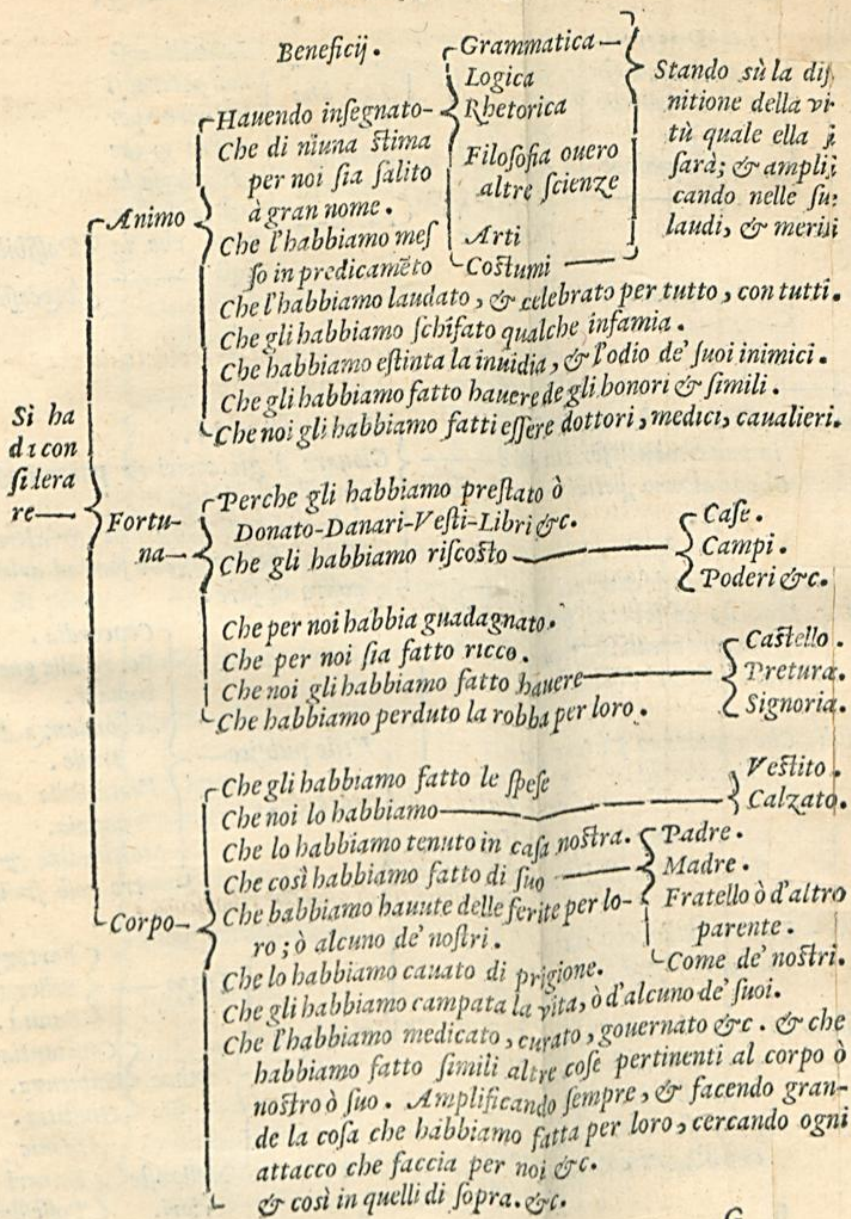 Beneficij.
Grammatica
Logica
Rhetorica
Filosofia ouero
altre scienze
Arti
Costumi
Stando sù la dif
nitione della vi
tù quale ella
sarà; & ampli
cando nelle su
laudi, & meriti
Si ha
di con
sidera
re
Animo
Hauendo insegnato
Che di niuna stima
per noi sia salito
à gran nome.
Che l'habbiamo mes
so in predicamẽto
Che l'habbiamo laudato, & celebrato per tutto, con tutti.
Che gli habbiamo schifato qualche infamia.
Che habbiamo estinta la inuidia, & l'odio de' suoi inimici.
Che gli habbiamo fatto hauere de gli honori & simili.
Che noi gli habbiamo fatti essere dottori, medici, caualieri.
Fortu-
na
Perche gli habbiamo prestato ò
Donato-Danari-Vesti-Libri &c.
Che gli habbiamo riscosto
Case.
Campi.
Poderi &c.
Che per noi habbia guadagnato.
Che per noi sia fatto ricco.
Che noi gli habbiamo fatto hauere
Castello.
Pretura.
Signoria.
Che habbiamo perduto la robba per loro.
Corpo
Che gli habbiamo fatto le spese
Che noi lo habbiamo
Vestito.
Calzato.
Che lo habbiamo tenuto in casa nostra.
Che così habbiamo fatto di suo
Padre.
Madre.
Fratello ò d'altro
parente.
Come de' nostri.
Che habbiamo hauute delle ferite per lo-
ro; ò alcuno de' nostri.
Che lo habbiamo cauato di prigione.
Che gli habbiamo campata la vita, ò d'alcuno de' suoi.
Che l'habbiamo medicato, curato, gouernato &c. & che
habbiamo fatto simili altre cose pertinenti al corpo ò
nostro ò suo. Amplificando sempre, & facendo gran-
de la cosa che habbiamo fatta per loro, cercando ogni
attacco che faccia per noi &c.
& così in quelli di sopra. &c.